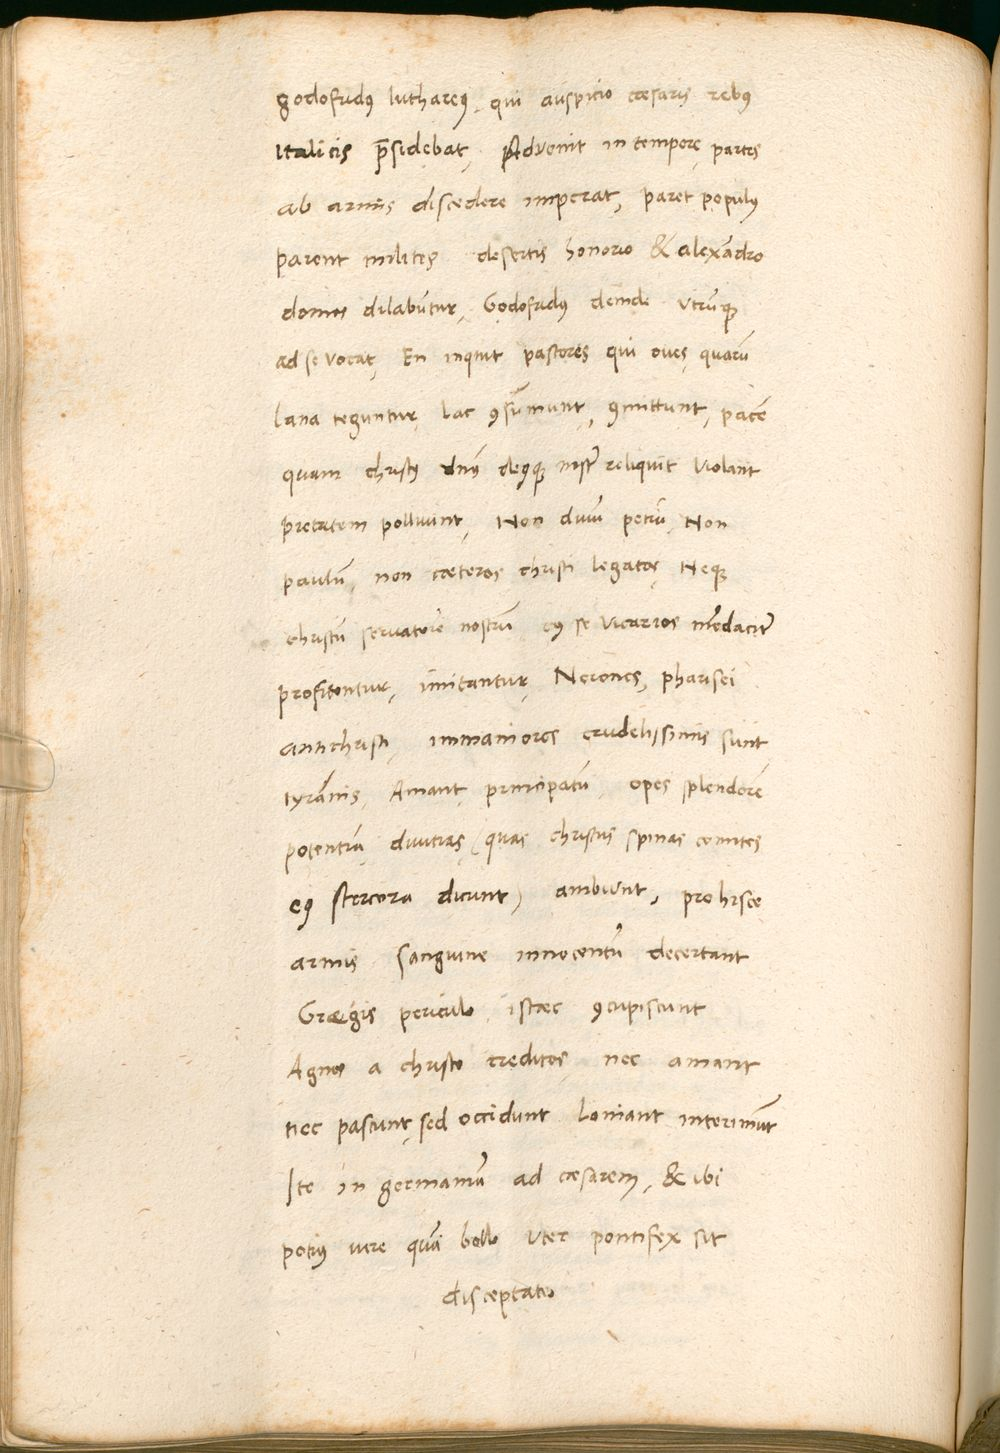 godofridꝰ lutharꝰ, qui auspicio cæsaris rebꝰ
Italicis p̄sidebat, Advenit in tempore, partes
ab armis discedere imperat, paret populꝰ
parent milites desertis honorio & alexādro
domos dilabūtur, Godofridꝰ deinde utrūqꝫ
ad se vocat, En inquit pastores qui oues, quarū
lana teguntur, lac ꝯsumunt, ꝯmittunt, pacē
quam christꝰ dn̄s deꝰqꝫ nr̄ reliquit violant
pietatem polluunt, Non diuū petrū, Non
paulū, non cæteros christi legatos, Neqꝫ
christū seruatorē nostrū cꝰ se vicarios mēdacit̄
profitentur, imitantur, Nerones, pharisei
antichristi, immaniores crudelissimis sunt
tyrānis, Amant, principatū, opes splendorē
potentiā, diuitias, (quas christus spinas comites
eꝰ stercora dicunt) ambiunt, pro hisce
armis sanguine innocentū decertant
Græegis periculo, istæc ꝯcupiscunt
Agnos a christo creditos, nec amant
nec pascunt, sed occidunt laniant interimūt
Ite in germaniā ad cæsarem, & ibi
potiꝰ iure quā bello uter pontifex sit
disceptate